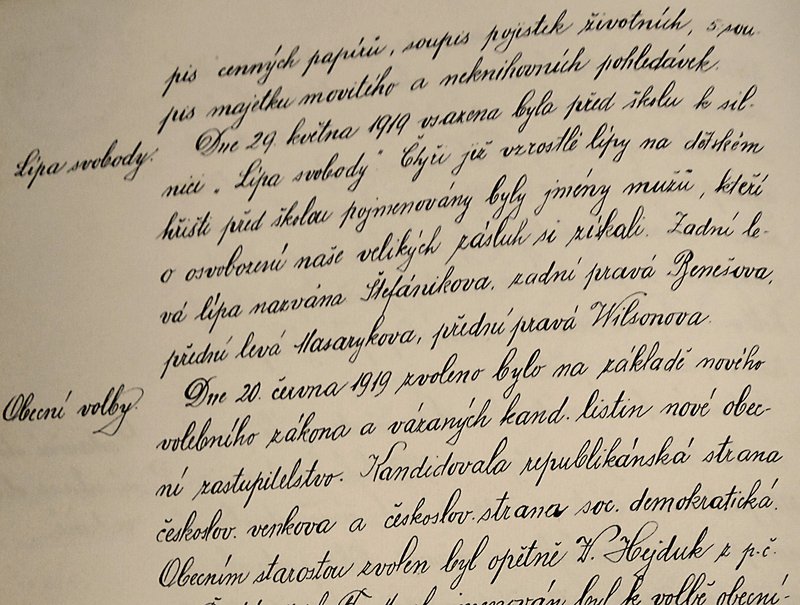 pis cenných papírů, soupis pojistek životních, 5. sou-
pis majetku movitého a neknihovních pohledávek.
Lípa svobody.
Dne 29. května 1919 vsazena byla před školu k sil-
nici „Lípa svobody“ Čtyři již vzrostlé lípy na dětském
hřišti před školou pojmenovány byly jmény mužů, kteří
o osvobození naše velikých zásluh si získali. Zadní le-
vá lípa nazvána Štefánikova, zadní pravá Benešova,
přední levá Masarykova, přední pravá Wilsonova.
Obecní volby.
Dne 20. června 1919 zvoleno bylo na základě nového
volebního zákona a vázaných kand. listin nové obec-
ní zastupitelstvo. Kandidovala republikánská strana
českoslov. venkova a českoslov. strana soc. demokratická.
Obecním starostou zvolen byl opětně V. Hejduk z p.č.
jmenován byl k volbě obecní-